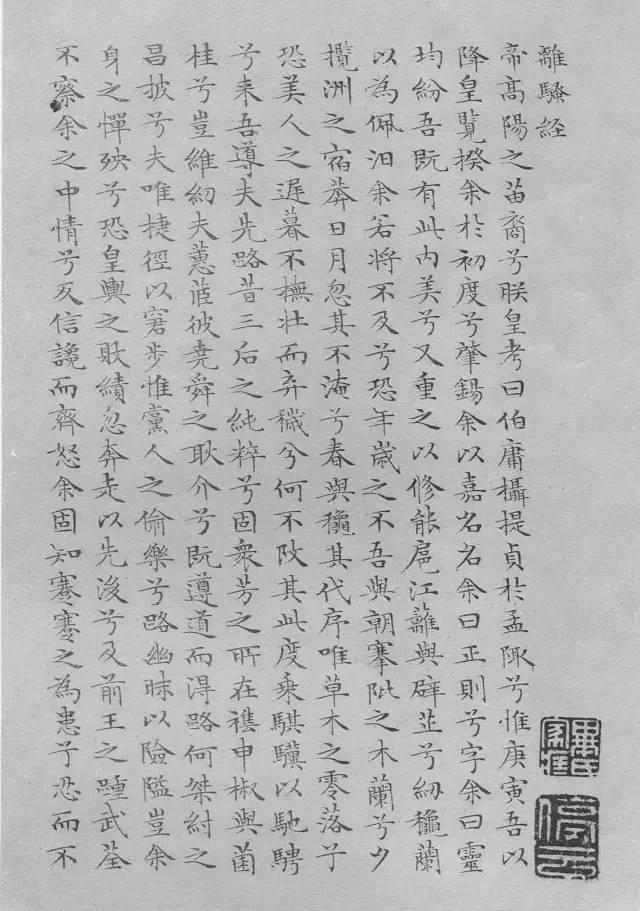 離騷經
帝高陽之苗裔兮朕皇考曰伯庸攝提貞於孟陬兮惟庚寅吾以
降皇覽揆余於初度兮肇錫余以嘉名名余曰正則兮字余曰靈
均紛吾既有此内美兮又重之以修能扈江蘺與辟芷兮紉穐蘭
以為佩汨余若將不及兮恐年歲之不吾與朝搴阰之木蘭兮夕
攬洲之宿莽日月忽其不淹兮春與穐其代序唯草木之零落兮
恐美人之遲暮不撫壯而弃穢兮何不改其此度乘騏驥以馳騁
兮来吾導夫先路昔三后之純粹兮固衆芳之所在襍申椒與菌
桂兮豈維紉夫蕙茝彼堯舜之耿介兮既遵道而得路何桀紂之
昌披兮夫唯捷徑以窘步惟黨人之偷樂兮路幽昧以險隘豈余
身之憚殃兮恐皇輿之敗績忽奔走以先後兮及前王之踵武荃
不察余之中情兮反信讒而齊怒余固知謇謇之為患兮忍而不
停雲